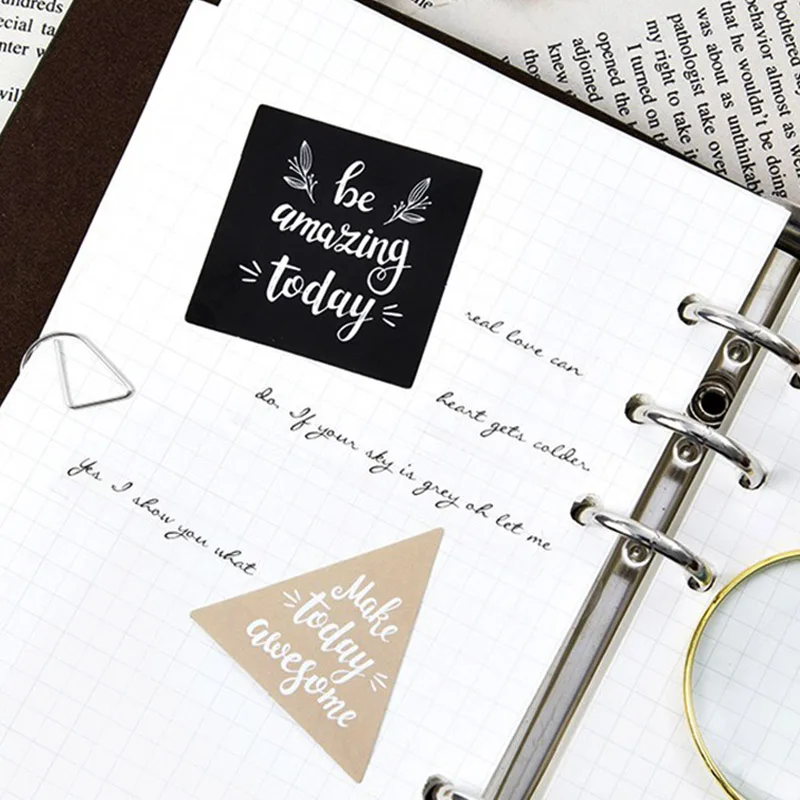 be
amazing
today
real love can
heart gets colder.
do. If your sky is grey oh let me
Yes. I show you what
Make
today
awesome
bothered
behavior almost as
that he wouldn't be doing
was about as unthinkable
pathologist take over
my right to take
I turned on
opened the
adjoined
knew